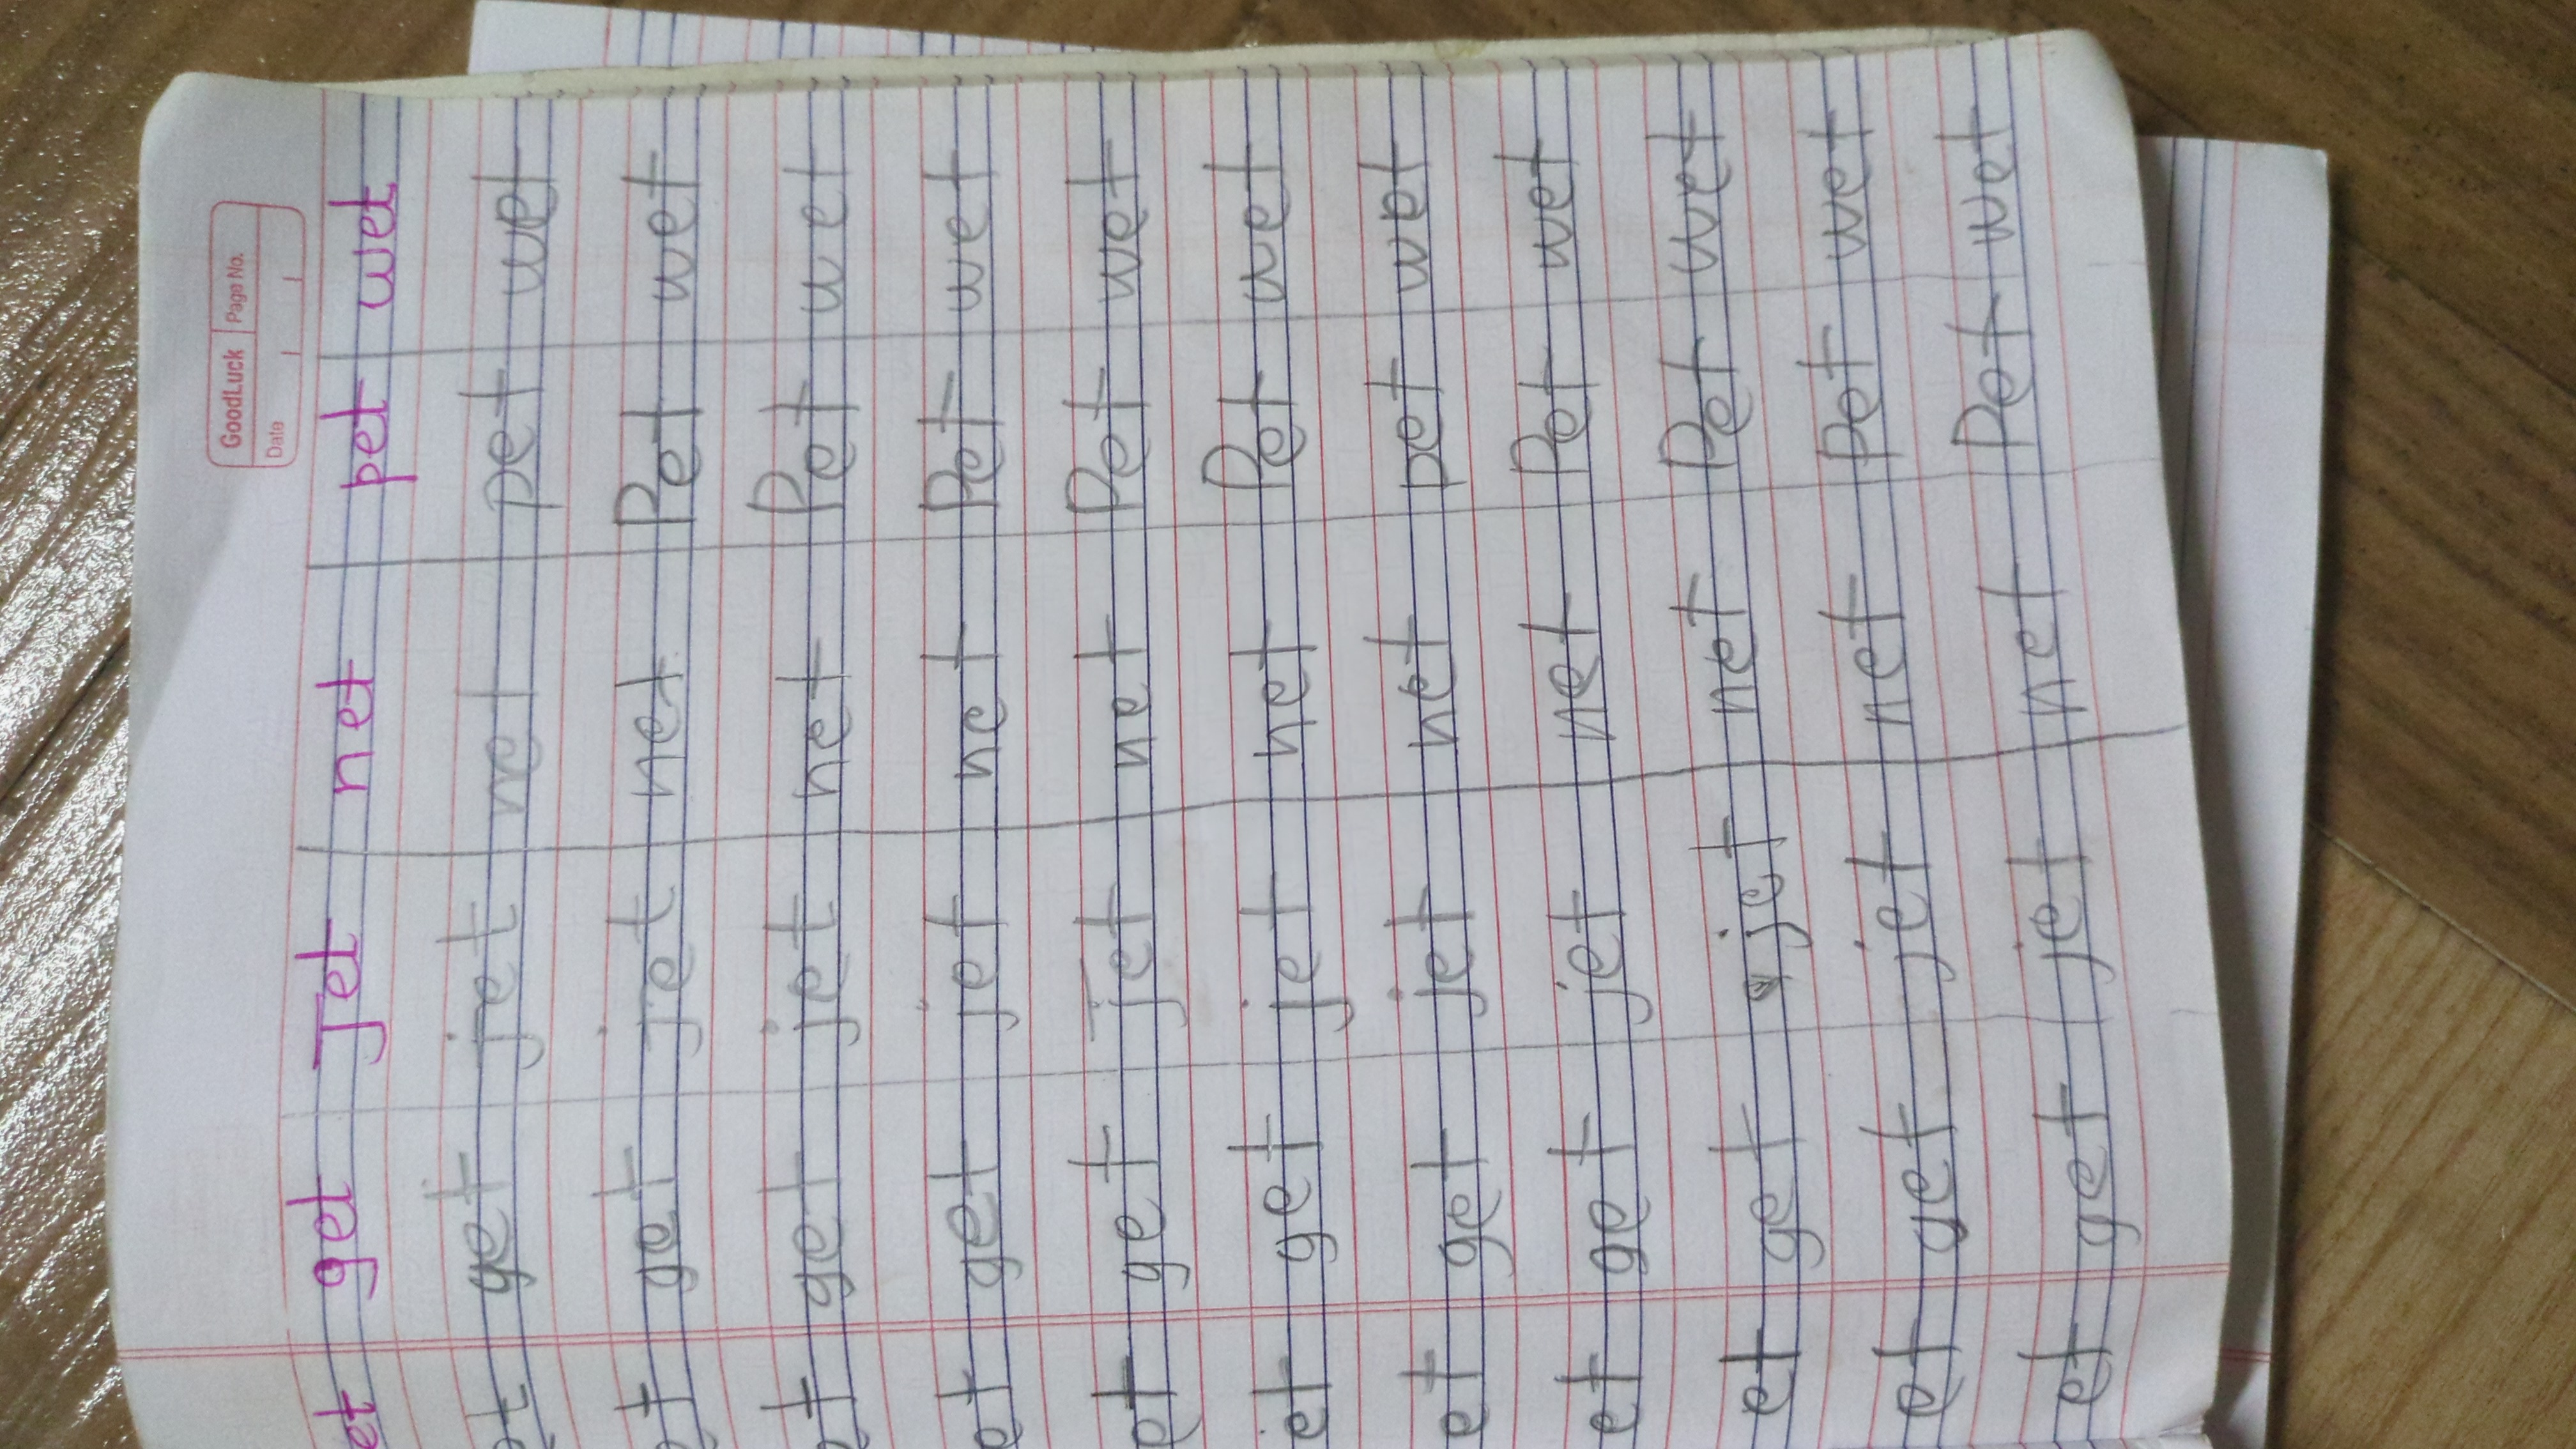 GoodLuck Page No.
Date
et get Jet net pet wet
et get jet net pet wet
et get jet net Pet wet
et get jet net Pet wet
et get jet net Pet wet
et get Jet net Pet wet
et get jet net Pet wet
et get jet net pet wet
et get jet net Pet wet
et get jet net Pet wet
et get jet net Pet wet
et get jet net Pet wet